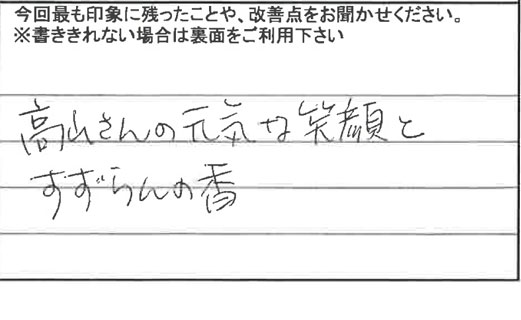 今回最も印象に残ったことや、改善点をお聞かせください。
※書ききれない場合は裏面をご利用下さい
高山さんの元気な笑顔と
すずらんの香